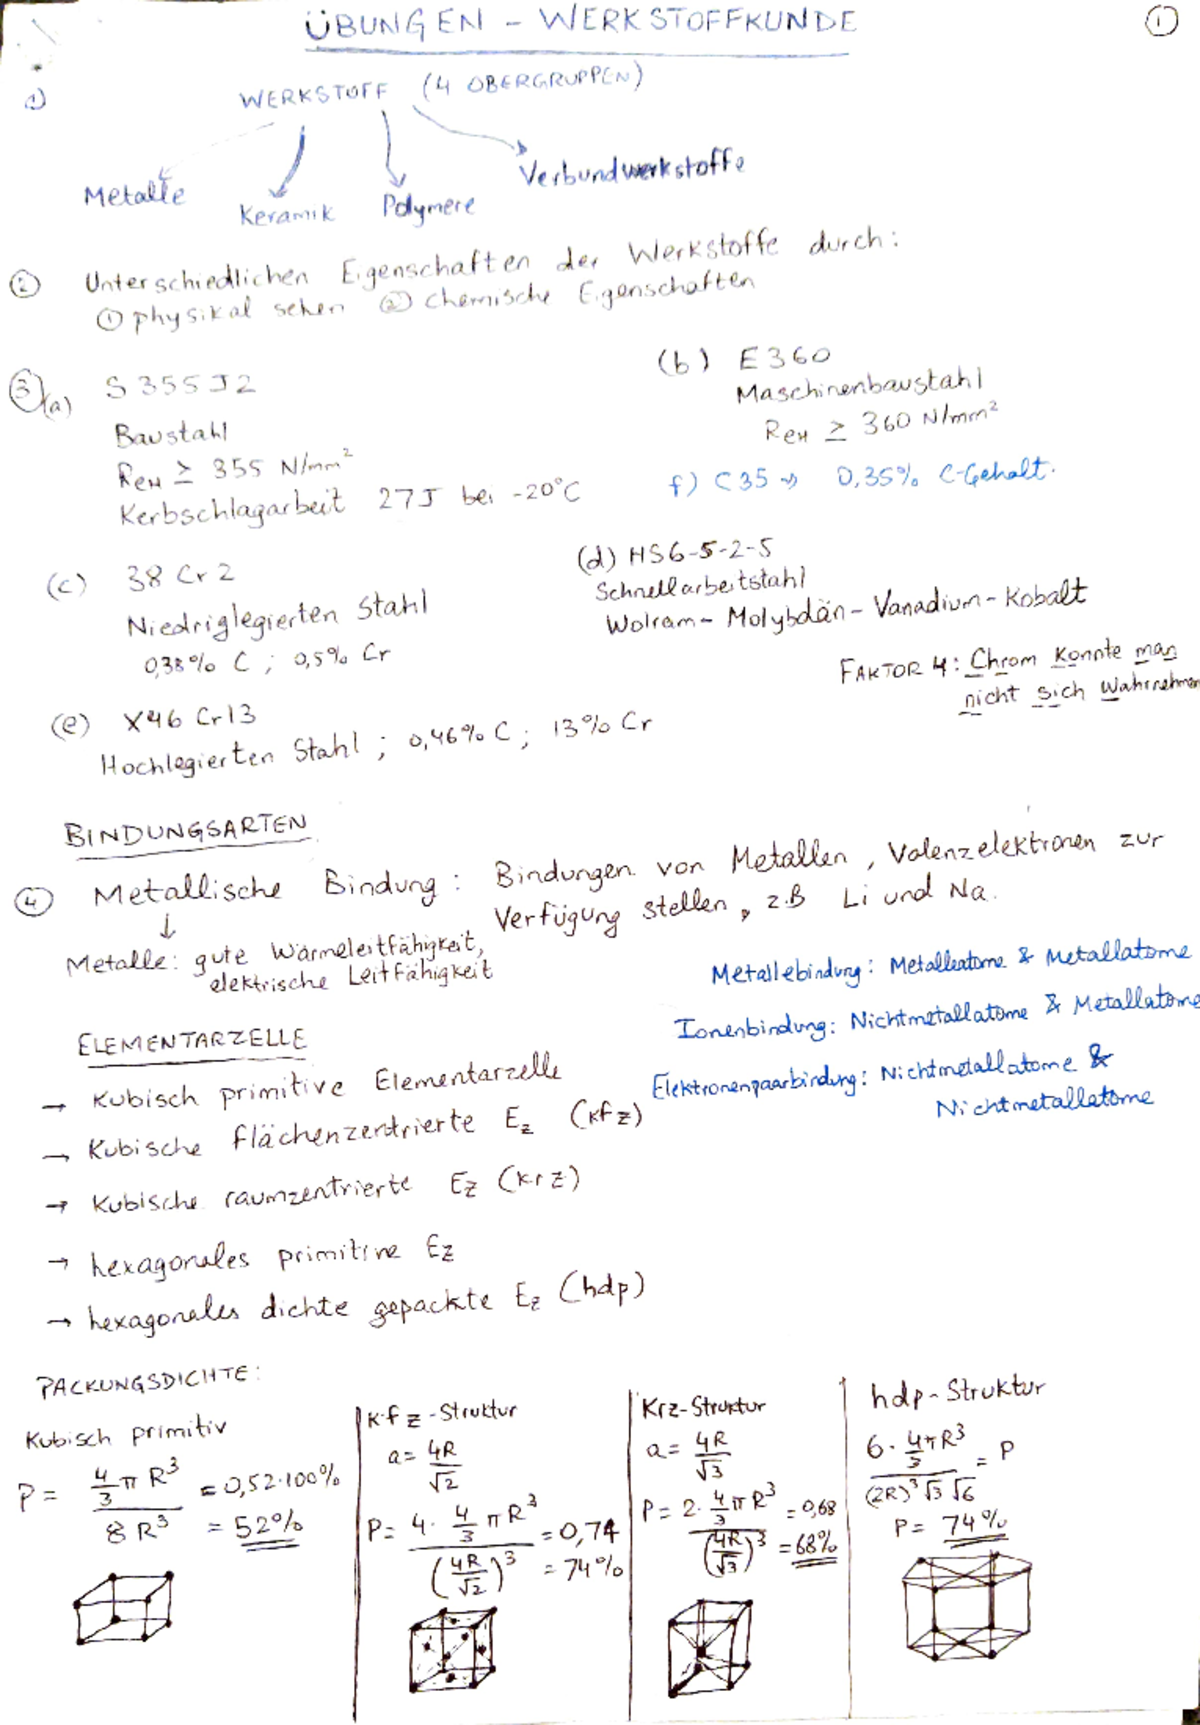 ÜBUNGEN - WERKSTOFFKUNDE
1
1)
WERKSTOFF (4 OBERGRUPPEN)
Metalle
Keramik
Polymere
Verbundwerkstoffe
2 Unterschiedlichen Eigenschaften der Werkstoffe durch:
① physikal sehen ② chemische Eigenschaften
3 (a) S355J2
Baustahl
ReH ≥ 355 N/mm²
Kerbschlagarbeit 27J bei -20°C
(b) E360
Maschinenbaustahl
ReH ≥ 360 N/mm²
f) C35 → 0,35% C-Gehalt.
(c) 38 Cr 2
Niedriglegierten Stahl
0,38% C ; 0,5% Cr
(d) HS6-5-2-5
Schnellarbeitstahl
Wolram- Molybdän- Vanadium- Kobalt
FAKTOR 4: Chrom Konnte man
nicht sich Wahrnehmen
(e) X46 Cr13
Hochlegierten Stahl ; 0,46% C ; 13% Cr
BINDUNGSARTEN
4 Metallische Bindung : Bindungen von Metallen , Valenzelektronen zur
Verfügung stellen, z.B Li und Na.
↓
Metalle: gute Wärmeleitfähigkeit,
elektrische Leitfähigkeit
Metallebindung: Metalleatome & Metallatome
Ionenbindung: Nichtmetallatome & Metallatome
Elektronenpaarbindung: Nichtmetallatome &
Nichtmetallatome
ELEMENTARZELLE
→ Kubisch primitive Elementarzelle
→ Kubische flächenzentrierte Ez (kfz)
→ Kubische raumzentrierte Ez (krz)
→ hexagonales primitive Ez
→ hexagonales dichte gepackte Ez (hdp)
PACKUNGSDICHTE:
Kubisch primitiv
P = 4/3 π R³ / 8 R³ = 0,52·100%
= 52%
kfz-Struktur
a = 4R/√2
P = 4 · 4/3 π R³ / (4R/√2)³ = 0,74
= 74%
Krz-Struktur
a = 4R/√3
P = 2 · 4/3 π R³ / (4R/√3)³ = 0,68
= 68%
hdp-Struktur
6 · 4/3 π R³ / (2R)³ √3 √6 = P
P = 74%